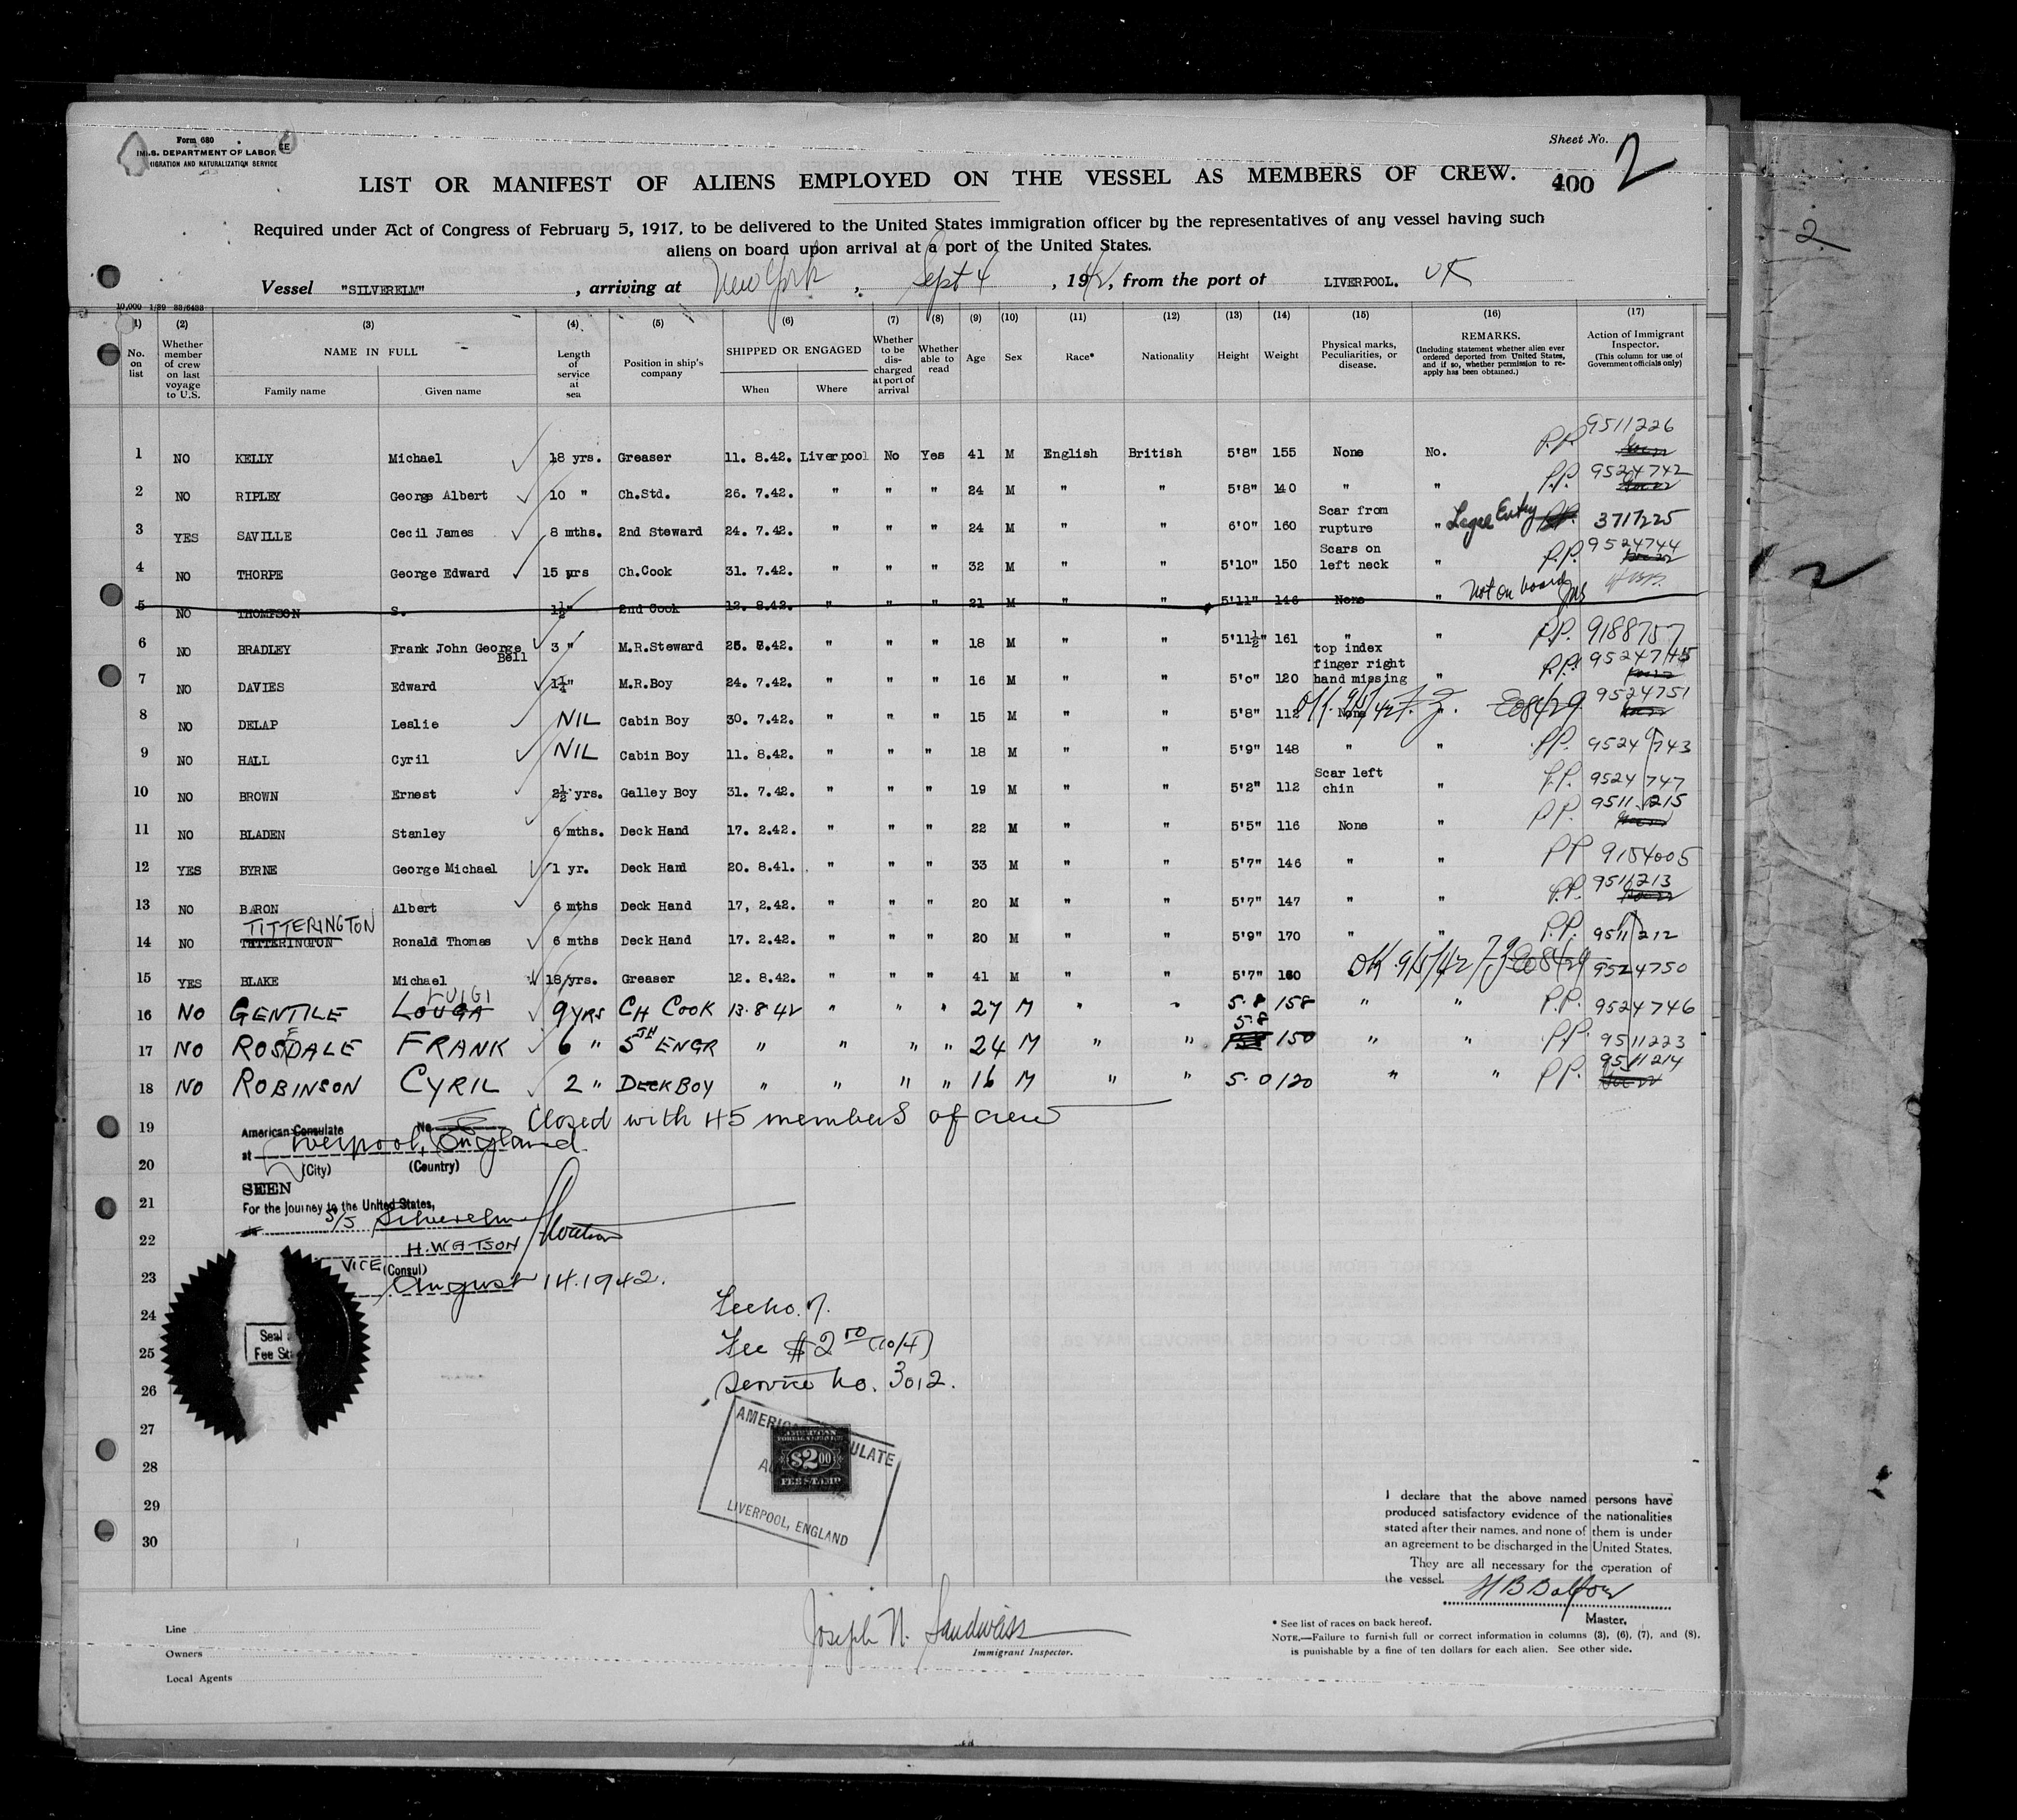 Form 680
U.S. DEPARTMENT OF LABOR
IMMIGRATION AND NATURALIZATION SERVICE
Sheet No. 2
LIST OR MANIFEST OF ALIENS EMPLOYED ON THE VESSEL AS MEMBERS OF CREW. 400
Required under Act of Congress of February 5, 1917, to be delivered to the United States immigration officer by the representatives of any vessel having such
aliens on board upon arrival at a port of the United States.
Vessel "SILVERELM", arriving at New York, Sept 4, 1942, from the port of LIVERPOOL. UK
10,000 1/39 33/6433
(1) (2) (3) (4) (5) (6) (7) (8) (9) (10) (11) (12) (13) (14) (15) (16) (17)
No. on list
Whether member of crew on last voyage to U.S.
NAME IN FULL
Family name
Given name
Length of service at sea
Position in ship's company
SHIPPED OR ENGAGED
When
Where
Whether to be discharged at port of arrival
Whether able to read
Age
Sex
Race*
Nationality
Height
Weight
Physical marks, Peculiarities, or disease.
REMARKS.
(Including statement whether alien ever ordered deported from United States, and if so, whether permission to reapply has been obtained.)
Action of Immigrant Inspector.
(This column for use of Government officials only)
1 NO KELLY Michael 18 yrs. Greaser 11. 8.42. Liverpool No Yes 41 M English British 5'8" 155 None No. P.P. 9511226
2 NO RIPLEY George Albert 10 " Ch.Std. 26. 7.42. " " " 24 M " " 5'8" 140 " " P.P. 9524742
3 YES SAVILLE Cecil James 8 mths. 2nd Steward 24. 7.42. " " " 24 M " " 6'0" 160 Scar from rupture " Legal Entry P.P. 3717225
4 NO THORPE George Edward 15 yrs Ch.Cook 31. 7.42. " " " 32 M " " 5'10" 150 Scars on left neck " P.P. 9524744
5 NO THOMPSON S. 1½" 2nd Cook 12. 8.42. " " " 21 M " " 5'11" 146 None " Not on board
6 NO BRADLEY Frank John George Bell 3 " M.R.Steward 25. 7.42. " " " 18 M " " 5'11½" 161 " " P.P. 9188757
7 NO DAVIES Edward 1¼" M.R.Boy 24. 7.42. " " " 16 M " " 5'0" 120 top index finger right hand missing " P.P. 9524745
8 NO DELAP Leslie NIL Cabin Boy 30. 7.42. " " " 15 M " " 5'8" 112 None " 9524751
9 NO HALL Cyril NIL Cabin Boy 11. 8.42. " " " 18 M " " 5'9" 148 " " P.P. 9524743
10 NO BROWN Ernest 2½ yrs. Galley Boy 31. 7.42. " " " 19 M " " 5'2" 112 Scar left chin " P.P. 9524747
11 NO BLADEN Stanley 6 mths. Deck Hand 17. 2.42. " " " 22 M " " 5'5" 116 None " P.P. 9511215
12 YES BYRNE George Michael 1 yr. Deck Hand 20. 8.41. " " " 33 M " " 5'7" 146 " " PP 9154005
13 NO BARON Albert 6 mths Deck Hand 17, 2.42. " " " 20 M " " 5'7" 147 " " P.P. 9511213
TITTERINGTON
14 NO Ronald Thomas 6 mths Deck Hand 17. 2.42. " " " 20 M " " 5'9" 170 " " P.P. 9511212
15 YES BLAKE Michael 18 yrs. Greaser 12. 8.42. " " " 41 M " " 5'7" 160 OK 9/5/42 9524750
LUIGI
16 NO GENTILE LOUGA 9 YRS CH COOK 13·8 42 " " " 27 M " " 5·8 158 " " P.P. 9524746
17 NO ROSEDALE FRANK 6 " 5TH ENGR " " " " 24 M " " 5·8 150 " " P.P. 9511223
18 NO ROBINSON CYRIL 2 " DECK BOY " " " " 16 M " " 5·0 120 " " P.P. 9511214
19 Closed with 45 members of crew
American Consulate No.
at Liverpool, England
(City) (Country)
20
SEEN
21
For the journey to the United States,
S/S Silverelm
22
H. WATSON HWatson
VICE (Consul)
23
August 14. 1942.
24
Fee $2.50 (10/4)
Seal
Fee St
25
Service no. 3012.
26
27
AMERICAN CONSULATE
AMERICAN
FOREIGN SERVICE
$2.00
FEE STAMP
28
LIVERPOOL, ENGLAND
29
30
I declare that the above named persons have
produced satisfactory evidence of the nationalities
stated after their names, and none of them is under
an agreement to be discharged in the United States.
They are all necessary for the operation of
the vessel.
H B Balfour
Master.
Line
Owners
Local Agents
Joseph N. Sandwaiss
Immigrant Inspector.
* See list of races on back hereof.
NOTE.—Failure to furnish full or correct information in columns (3), (6), (7), and (8),
is punishable by a fine of ten dollars for each alien. See other side.
2
2